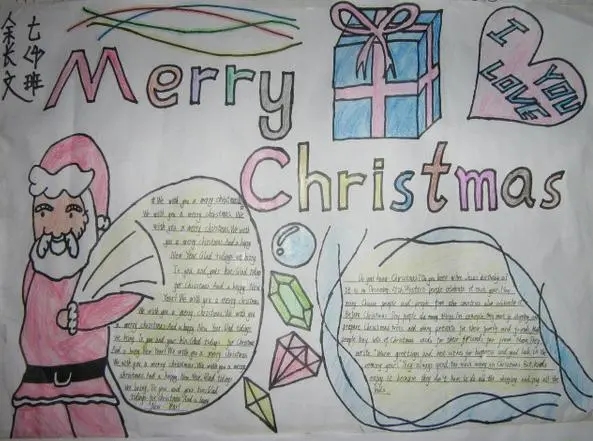 七(4)班
余长文
Merry
Christmas
I
LOVE
YOU
We wish you a merry christmas.
We wish you a merry christmas. We
wish you a merry christmas. We wish
you a merry christmas And a happy
New Year. Glad tidings we bring
To you and your
for Christmas And a happy New
Year! We wish you a merry christmas.
We wish you a merry christmas. We wish you
a merry christmas And a happy New Year. Glad tidings
we bring To you and your kin. Glad tidings for Christmas
And a happy New Year! We wish you a merry christmas.
We wish you a merry christmas. We wish you a merry
christmas And a happy New Year. Glad tidings
we bring To you and your kin. Glad
tidings for Christmas And a happy
New Year!
Do you know Christmas? Do you know when Jesus' birthday is?
It is on December 25th. Western people celebrate it every year. Now
many Chinese people and people from other countries also celebrate it.
Before Christmas Day, people do many things. For example, they
prepare Christmas trees and many presents for their family and friends.
people buy lots of Christmas cards for their friends and
write "Warm greetings and best wishes for happiness and good luck in the
coming year". They always spend too much money on Christmas. But
enjoy it because they don't have to do the shopping and pay all the
bills.